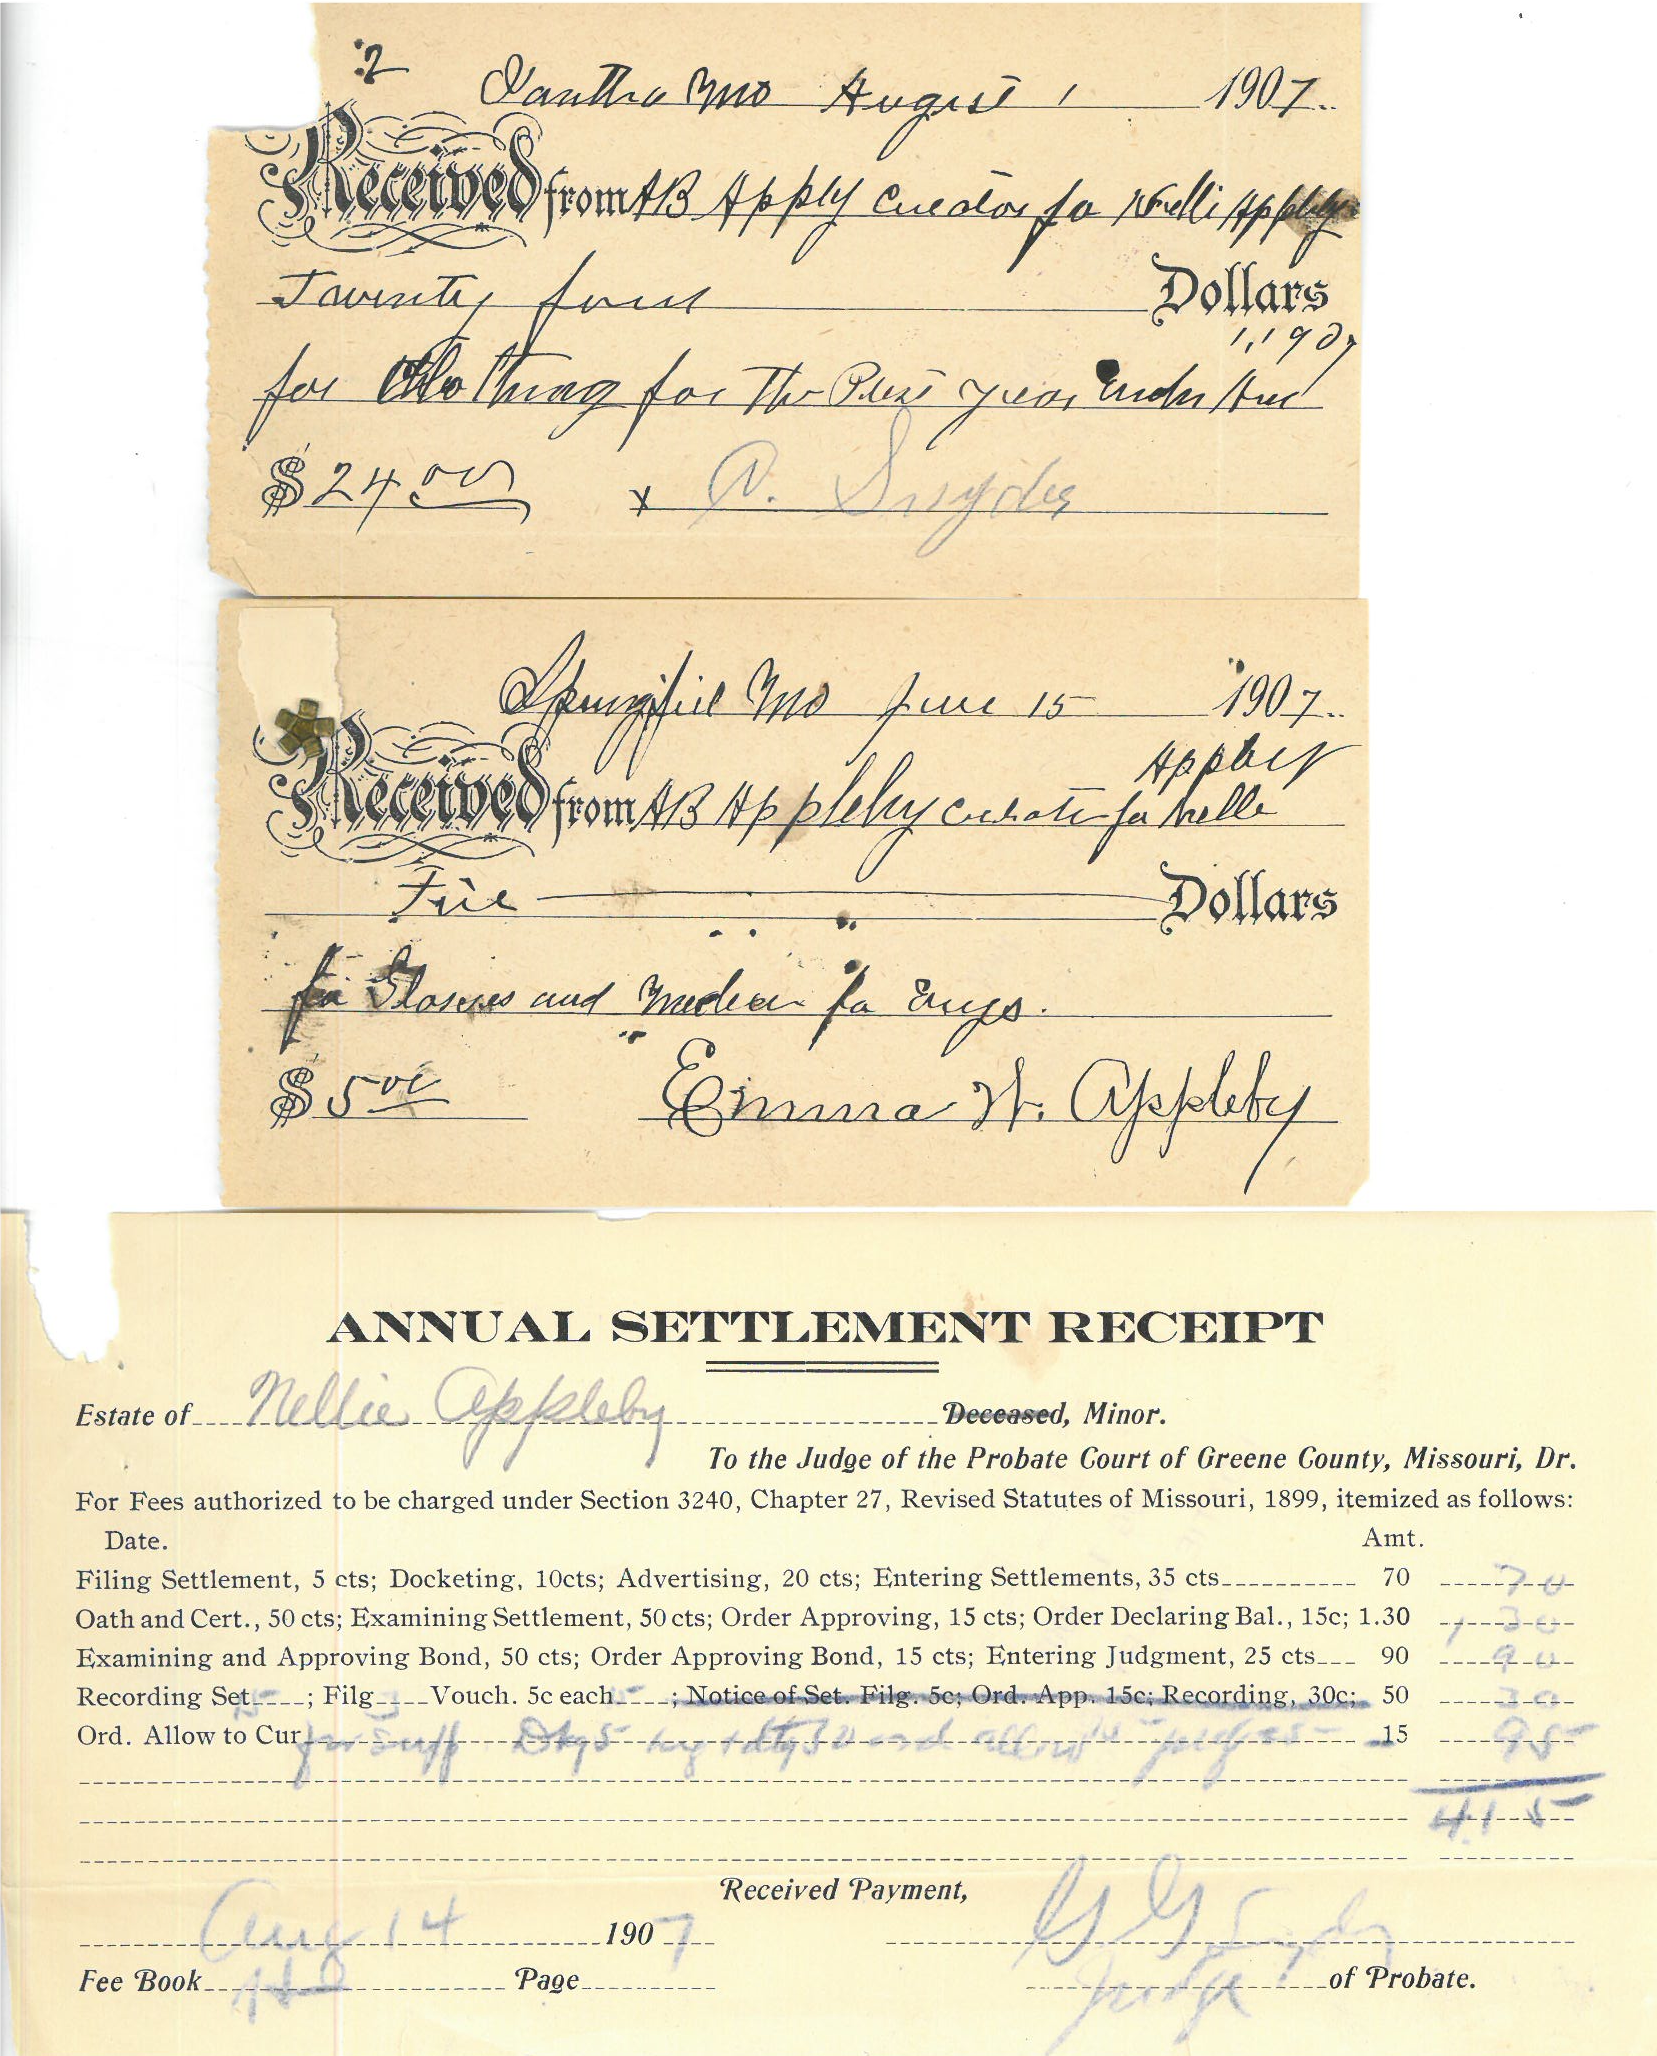 2
Xantha Mo August 1 1907
Received from AB Apply curator fo Nelli Appleby
Twenty four Dollars
1, 1907
for Clothing for The Past year
$ 24 00 x A. Snyder
Mo June 15 1907
Appleby
Received from AB Appleby curator fo Nelle
Five Dollars
fo Glasses and fo Euys.
$ 5 00 Emma W. Appleby
ANNUAL SETTLEMENT RECEIPT
Estate of Nellie Appleby Deceased, Minor.
To the Judge of the Probate Court of Greene County, Missouri, Dr.
For Fees authorized to be charged under Section 3240, Chapter 27, Revised Statutes of Missouri, 1899, itemized as follows:
Date. Amt.
Filing Settlement, 5 cts; Docketing, 10cts; Advertising, 20 cts; Entering Settlements, 35 cts 70 70
Oath and Cert., 50 cts; Examining Settlement, 50 cts; Order Approving, 15 cts; Order Declaring Bal., 15c; 1.30 1 30
Examining and Approving Bond, 50 cts; Order Approving Bond, 15 cts; Entering Judgment, 25 cts 90 90
Recording Set. 15; Filg Vouch. 5c each ; Notice of Set. Filg. 5c; Ord. App. 15c; Recording, 30c; 50 30
Ord. Allow to Cur 15 95
4.15
Received Payment,
Aug 14 1907 G G Snyder
Fee Book Page Judge of Probate.